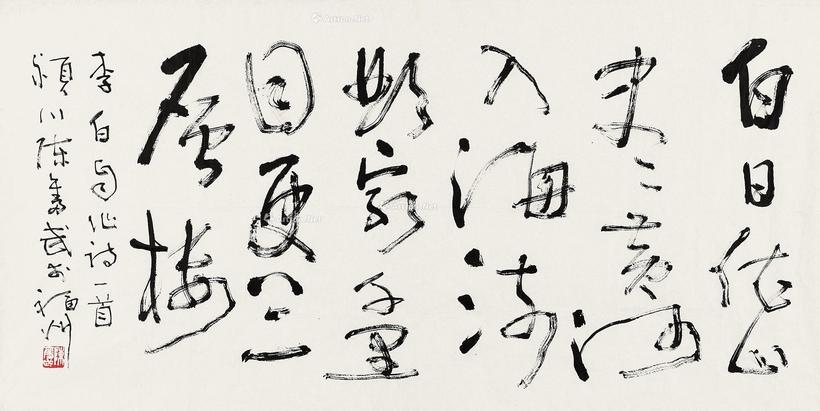 白日依山
尽黄河
入海流
欲穷千里
目更上一
层楼
李白 诗一首
颍川陈奋武 福州
Artron.Net